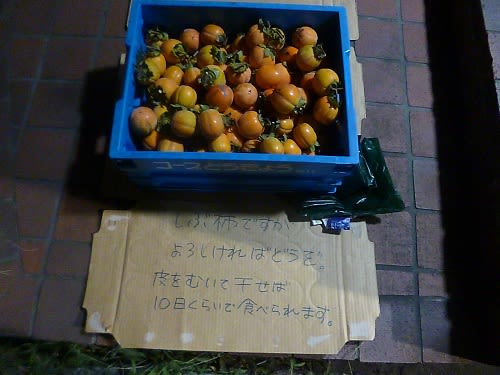 コープとうきょう
しぶ柿ですが
よろしければどうぞ。
皮をむいて干せば
10日くらいで食べられます。